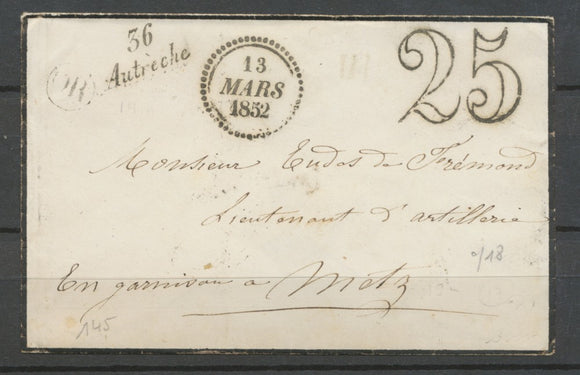 36
Autrèche
OR
13
MARS
1852
25
Monsieur Eudes de Frémond
Lieutenant d'artillerie
En garnison à Metz
9/18
145